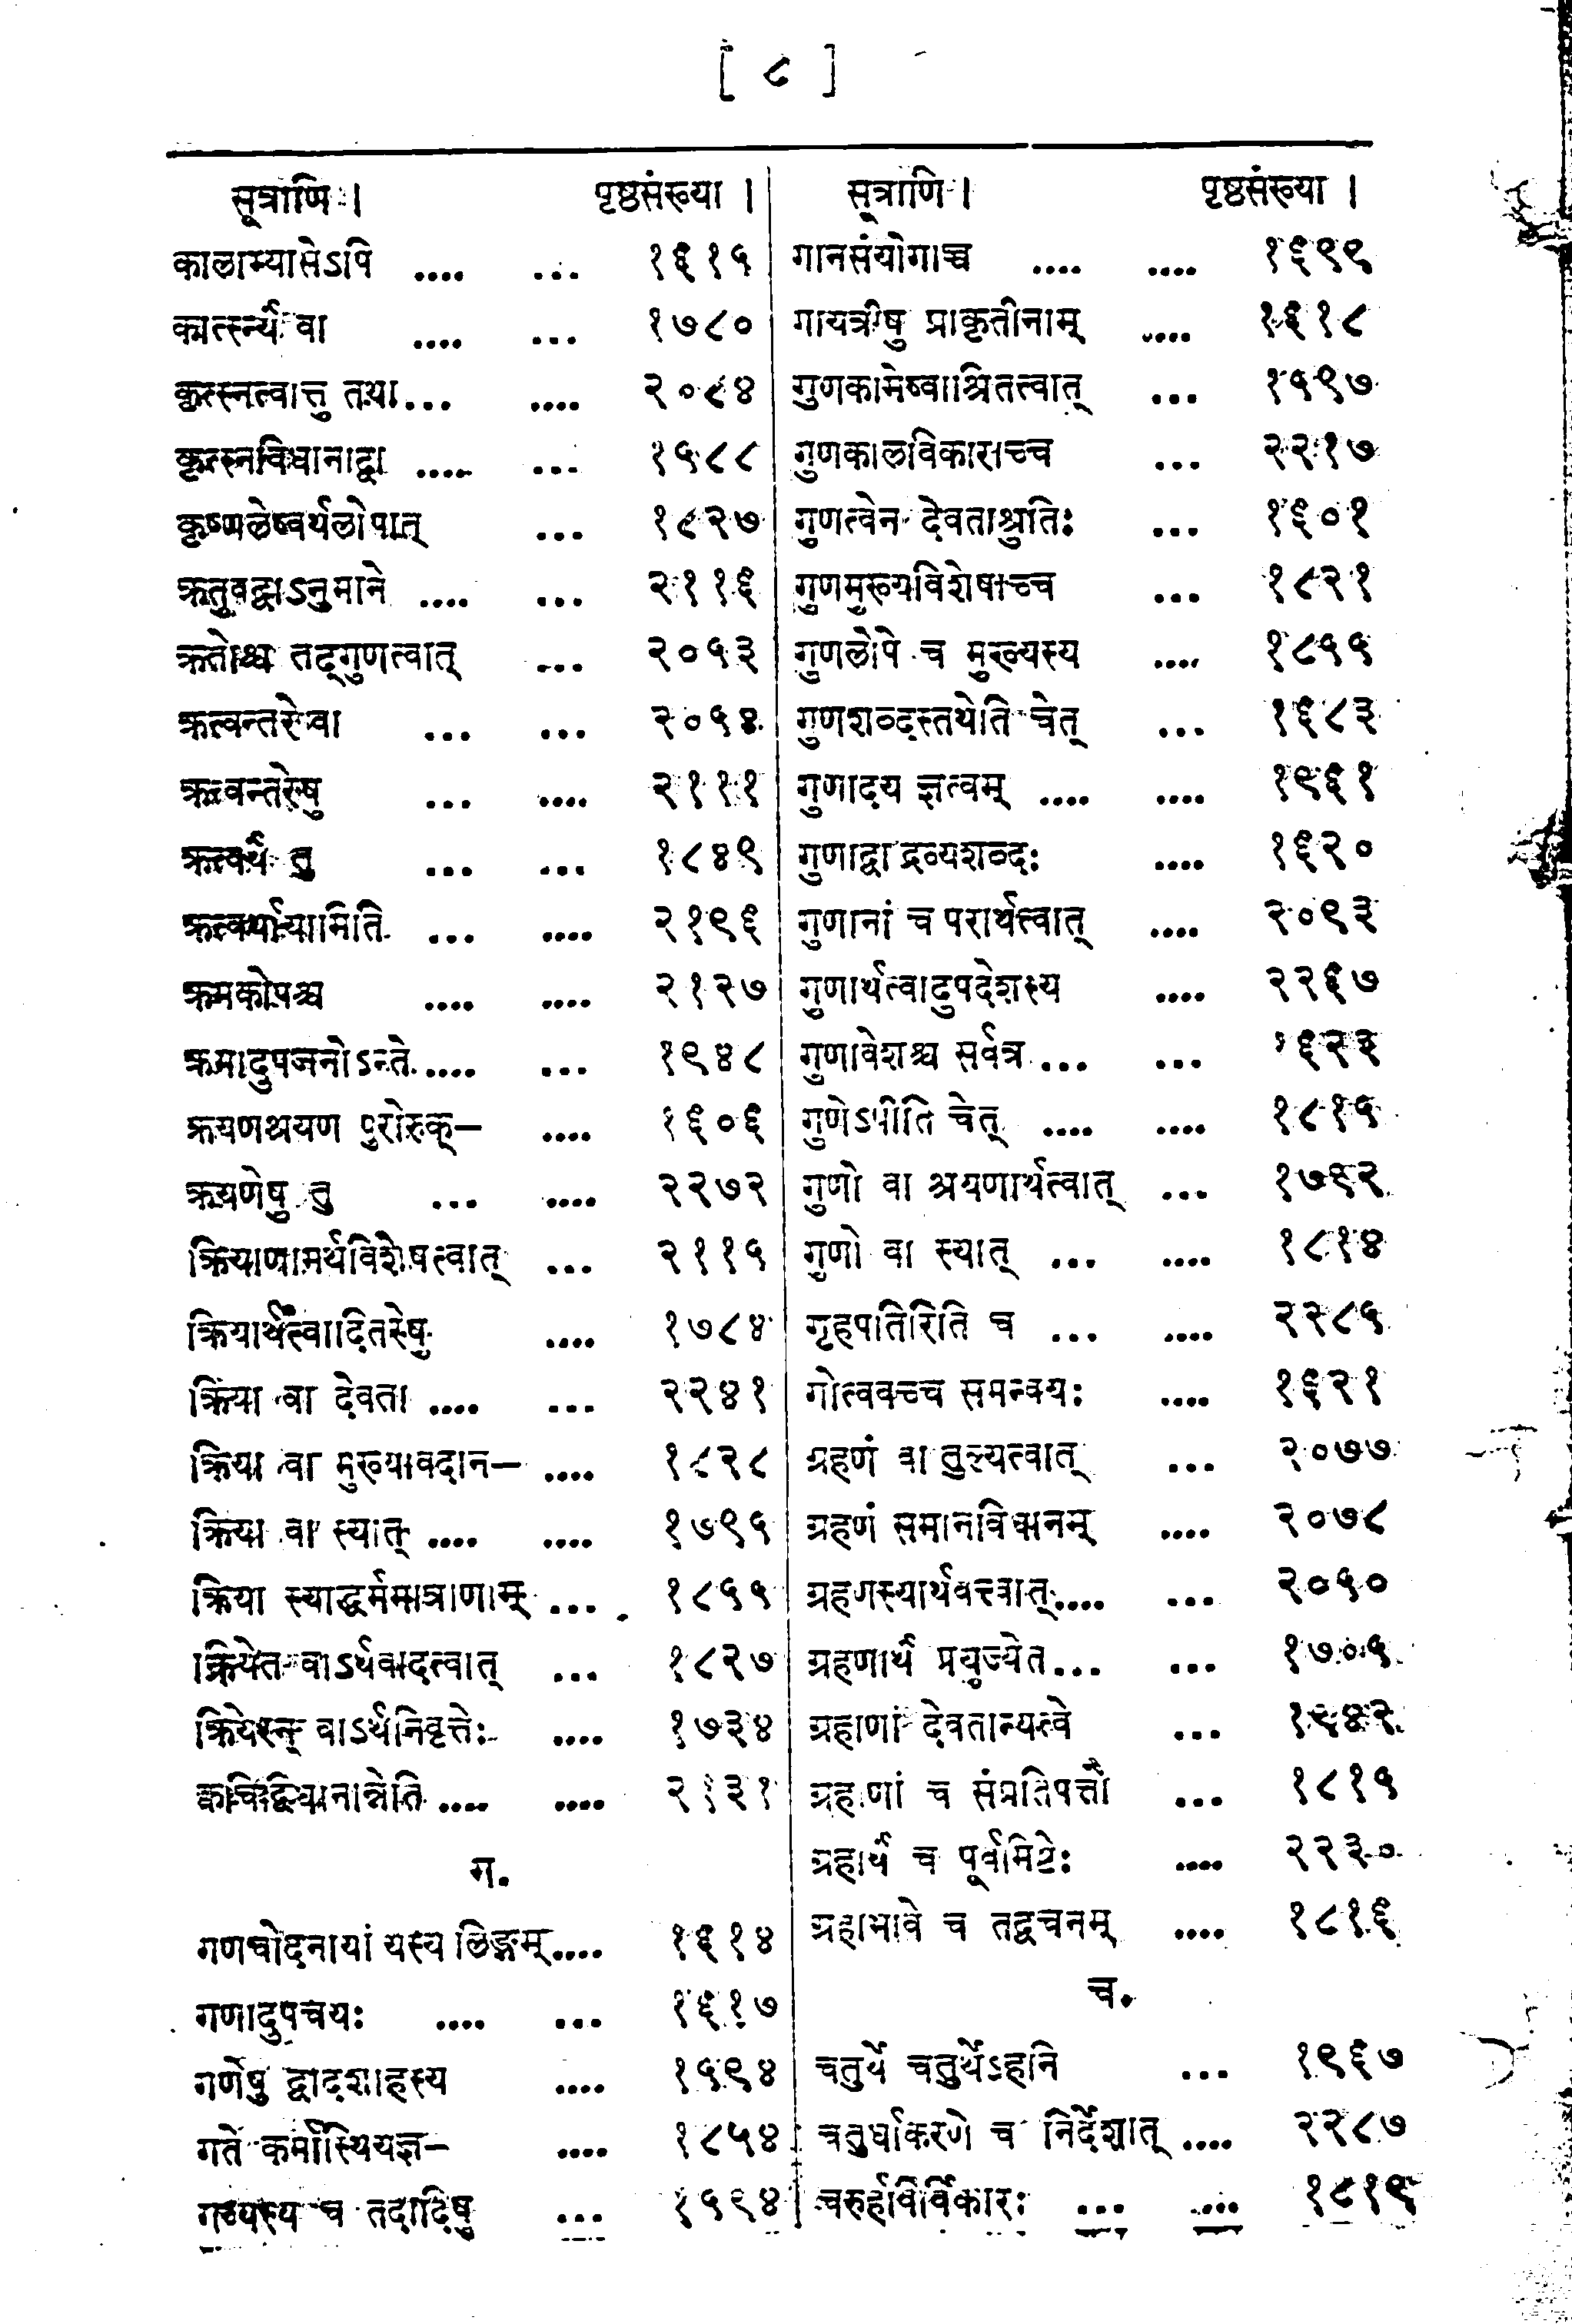 [ ८ ]
सूत्राणि । पृष्ठसंख्या ।
कालाभ्यासेऽपि .... ... १६१५
कात्स्न्यं वा .... ... १७८०
कृत्स्नत्वात्तु तथा... .... २०८४
कृत्स्नविधानाद्वा .... ... १५८८
कृष्णलेष्वर्थलोपात् ... १८२७
क्रतुवद्वाऽनुमाने .... ... २११६
क्रतोश्च तद्गुणत्वात् ... २०५३
क्रत्वन्तरे वा ... ... २०५४
क्रत्वन्तरेषु ... .... २१११
क्रत्वर्थं तु ... ... १८४९
क्रत्वर्थायामिति ... .... २१९६
क्रमकोपश्च .... .... २१२७
क्रमादुपजनोऽन्ते.... ... १९४८
क्रयणश्रयण पुरोरुक्– .... १६०६
क्रयणेषु तु ... .... २२७२
क्रियाणामर्थविशेषत्वात् ... २११५
क्रियार्थत्वादितरेषु .... १७८४
क्रिया वा देवता .... ... २२४१
क्रिया वा मुख्यावदान– .... १८२८
क्रिया वा स्यात् .... .... १७९५
क्रिया स्याद्धर्ममात्राणाम् ... १८५५
क्रियेत वाऽर्थवादत्वात् ... १८२७
क्रियेरन् वाऽर्थनिवृत्तेः .... १७३४
क्वचिद्विधानान्नेति .... .... २१३१
ग.
गणचोदनायां यस्य लिङ्गम्.... १६१४
गणादुपचयः .... ... १६१७
गणेषु द्वादशाहस्य .... १५९४
गते कर्मास्थियज्ञ– .... १८५४
गव्यस्य च तदादिषु ... १५९४
सूत्राणि । पृष्ठसंख्या ।
गानसंयोगाच्च .... .... १६९९
गायत्रीषु प्राकृतीनाम् .... १६१८
गुणकामेष्वाश्रितत्वात् ... १५९७
गुणकालविकाराच्च ... २२१७
गुणत्वेन देवताश्रुतिः ... १६०१
गुणमुख्यविशेषाच्च ... १८२१
गुणलोपे च मुख्यस्य .... १८५५
गुणशब्दस्तथेति चेत् ... १६८३
गुणादयज्ञत्वम् .... .... १९६१
गुणाद्वा द्रव्यशब्दः .... १६२०
गुणानां च परार्थत्वात् .... २०९३
गुणार्थत्वादुपदेशस्य .... २२६७
गुणावेशश्च सर्वत्र ... ... १६२३
गुणेऽपीति चेत् .... .... १८१५
गुणो वा श्रयणार्थत्वात् ... १७९२
गुणो वा स्यात् ... .... १८१४
गृहपतिरिति च ... .... २२८५
गोत्ववच्च समन्वयः .... १६२१
ग्रहणं वा तुल्यत्वात् ... २०७७
ग्रहणं समानविधानम् .... २०७८
ग्रहणस्यार्थवत्त्वात्.... ... २०५०
ग्रहणार्थं प्रयुज्येत... ... १७०५
ग्रहाणां देवतान्यत्वे ... १९४२
ग्रहाणां च संप्रतिपत्तौ ... १८१५
ग्रहार्थं च पूर्वमिष्टेः .... २२३०
ग्रहाभावे च तद्वचनम् .... १८१६
च.
चतुर्थे चतुर्थेऽहनि ... १९६७
चतुर्धाकरणे च निर्देशात् .... २२८७
चरुर्हविर्विकारः ... .... १८१९